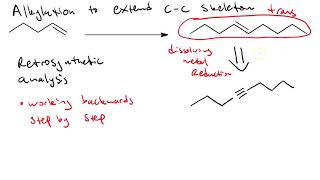 Alkylation to extend C-C skeleton
trans
dissolving
metal
Reduction
Retrosynthetic
analysis
• working backwards
step by step